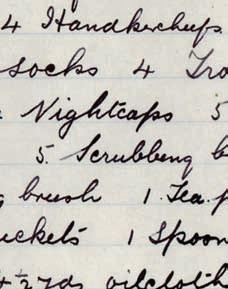 4 Handkercheifs
socks 4 Tro
Nightcaps 5
5. Scrubbing b
brush 1. Tea. p
uckets 1 Spoon
4 ½ yds oilcloth